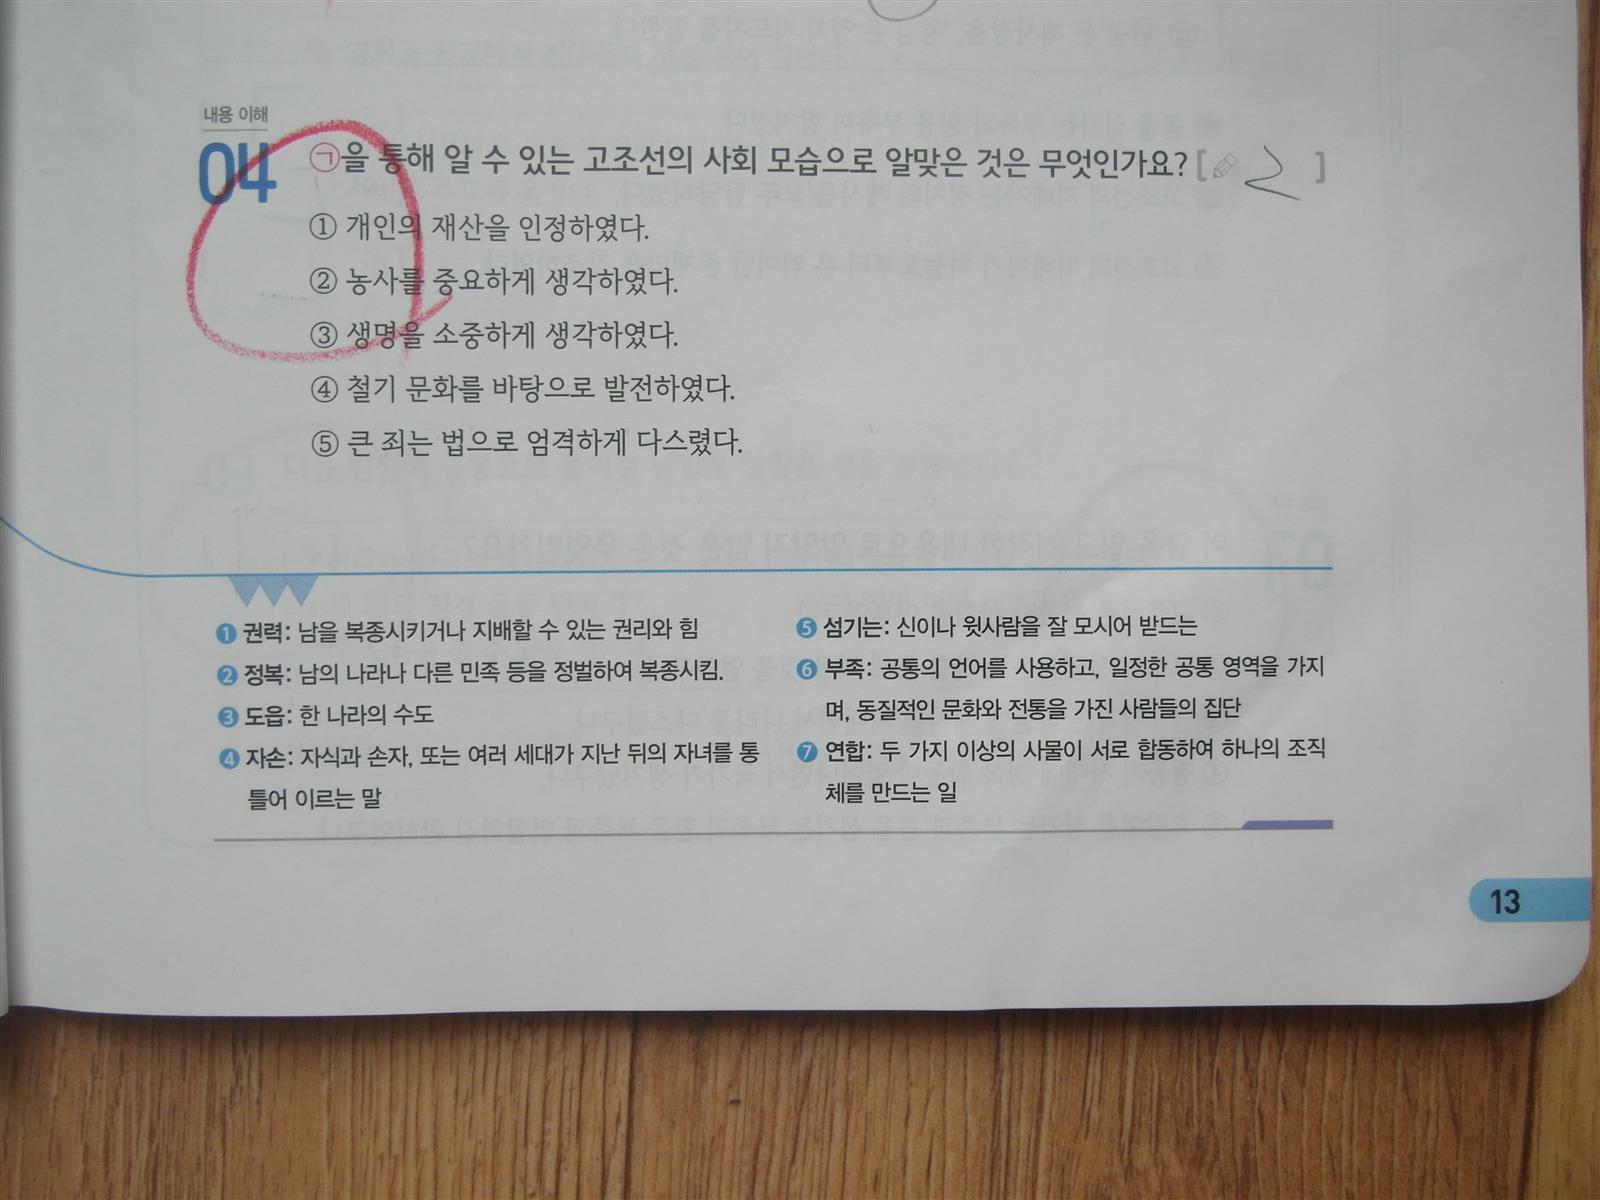 내용 이해
04 ㉠을 통해 알 수 있는 고조선의 사회 모습으로 알맞은 것은 무엇인가요? [ 2 ]
① 개인의 재산을 인정하였다.
② 농사를 중요하게 생각하였다.
③ 생명을 소중하게 생각하였다.
④ 철기 문화를 바탕으로 발전하였다.
⑤ 큰 죄는 법으로 엄격하게 다스렸다.
❶ 권력: 남을 복종시키거나 지배할 수 있는 권리와 힘
❷ 정복: 남의 나라나 다른 민족 등을 정벌하여 복종시킴.
❸ 도읍: 한 나라의 수도
❹ 자손: 자식과 손자, 또는 여러 세대가 지난 뒤의 자녀를 통
틀어 이르는 말
❺ 섬기는: 신이나 윗사람을 잘 모시어 받드는
❻ 부족: 공통의 언어를 사용하고, 일정한 공통 영역을 가지
며, 동질적인 문화와 전통을 가진 사람들의 집단
❼ 연합: 두 가지 이상의 사물이 서로 합동하여 하나의 조직
체를 만드는 일
13